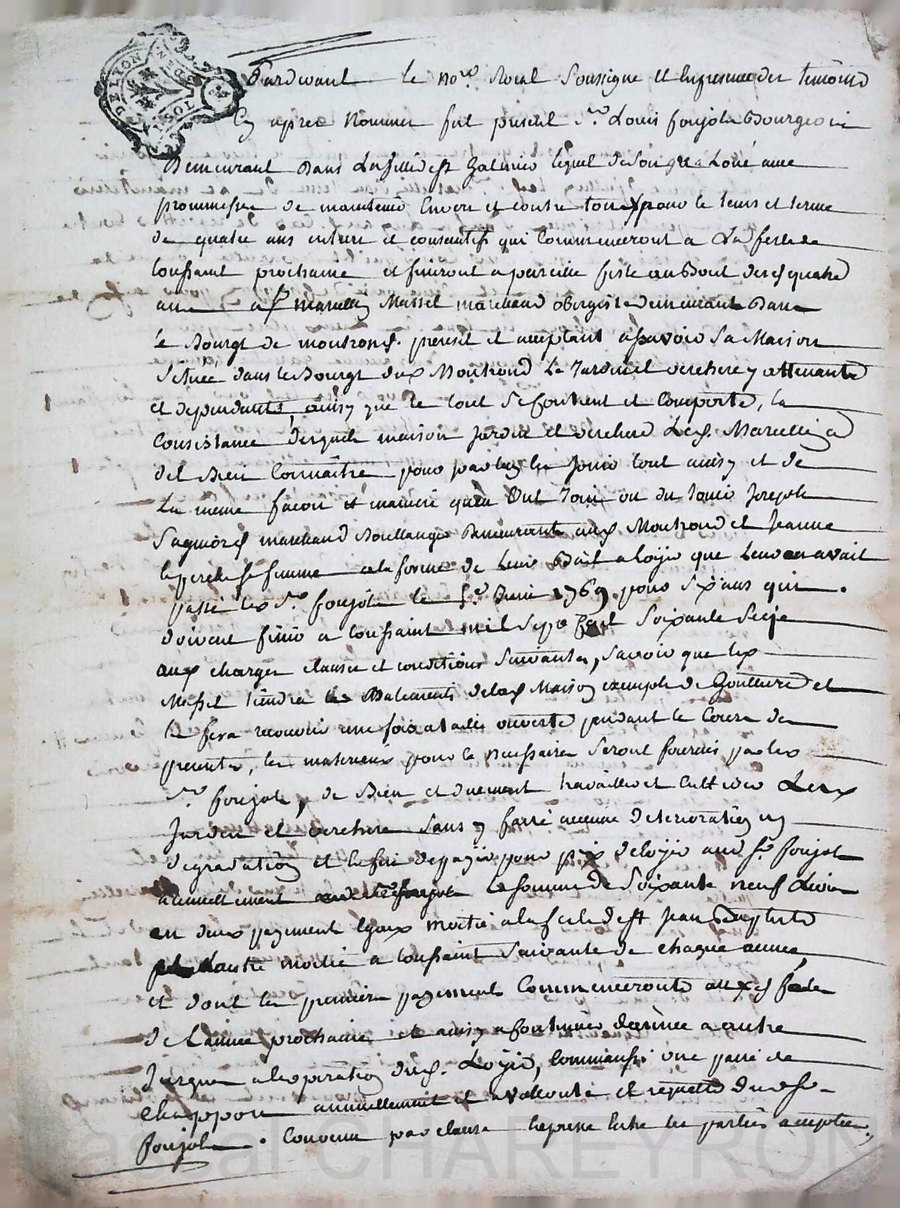 DE LION
Pardevant le no.re Royal Soussigné et En presence des temoins
Cy apres Nommés fut present S.r Louis foujols Bourgeois
Demeurant Dans La ville de S.t Galmier lequel de Son gré a Loué avec
promesse de maintenir Envers et contre tous pour le tems et terme
de quatre ans entiers et consecutifs qui Commenceront a La feste de
toussaint prochaine et finiront a pareille feste au Bout desd quatre
ans a S.r Marcellin Massel marchand obergiste demeurant Dans
le Bourgt de montrond present et acceptant asavoir Sa Maison
Scituée dans le Bourgt dud Montrond Le Jardin et verchere y attenants
et dependants ainsy que le tout Se Contient et Comporte, la
Consistance desquels maison Jardin et verchere Led. Marcellin a
dit Bien Connaitre pour par luy En Jouir tout ainsy et de
La même façon et maniere qu'en Ont Joui ou du Jouir Joseph
marchand Boullanger Demeurant aud Montrond et Jeanne
sa femme en la forme de Leur Bail a loyer que Leur en avait
passé led S.r foujols le 1769 pour Six ans qui
doivent finir a toussaint mil Sept Cent Soixante Seize
aux charges clauses et conditions Suivantes, Savoir que led
Massel tiendra les Batiments de lad Maison exempts de Goutieres et
les fera recouvrir une fois a taille ouverte pendant le Cours des
presentes, les materieux pour ce necessaires Seront fournis par led
S.r foujols, de Bien et duement travailler et Cultiver Led
Jardin et verchere Sans y faire aucune deterioration ny
degradation et enfin de payer pour prix de loyer aud S.r foujols
annuellement La Somme de Soixante neuf Livres
en deux payements Egaux moitié a la feste de S.t Jean Baptiste
et L'autre moitié a toussaint Suivante de chaque année
et dont les premiers payements Commenceront auxd fetes
de L'année prochaine et ainsy a Continuer d'année a autre
Jusques a l'expiration dud. Loyer, comm'aussi une paire de
Chappons annuellement et a volonté et requette dud S.r
foujols. Convenu par clause Expresse Entre les parties acceptée
Pascal CHAREYRON